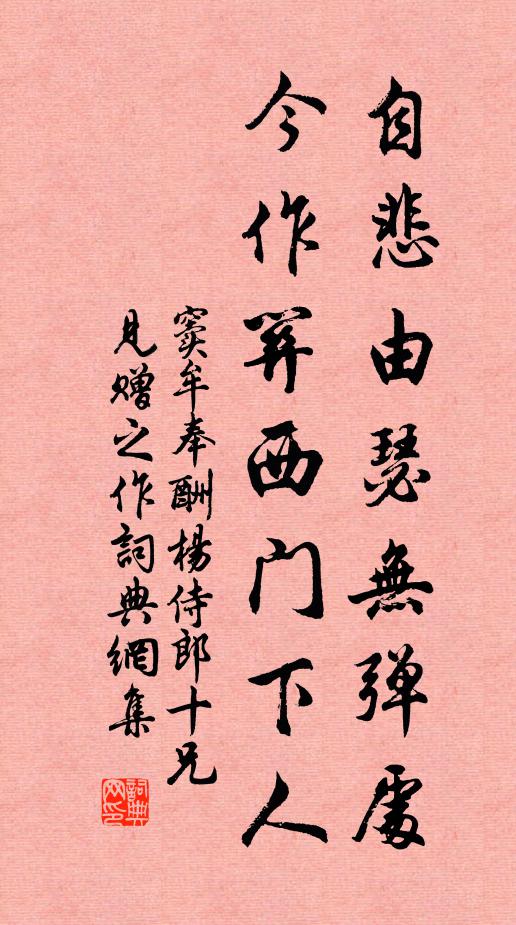 自悲由瑟無彈處
今作關西門下人
竇牟奉酬楊侍郎十兄
見贈之作詞典網集
詞典
网印